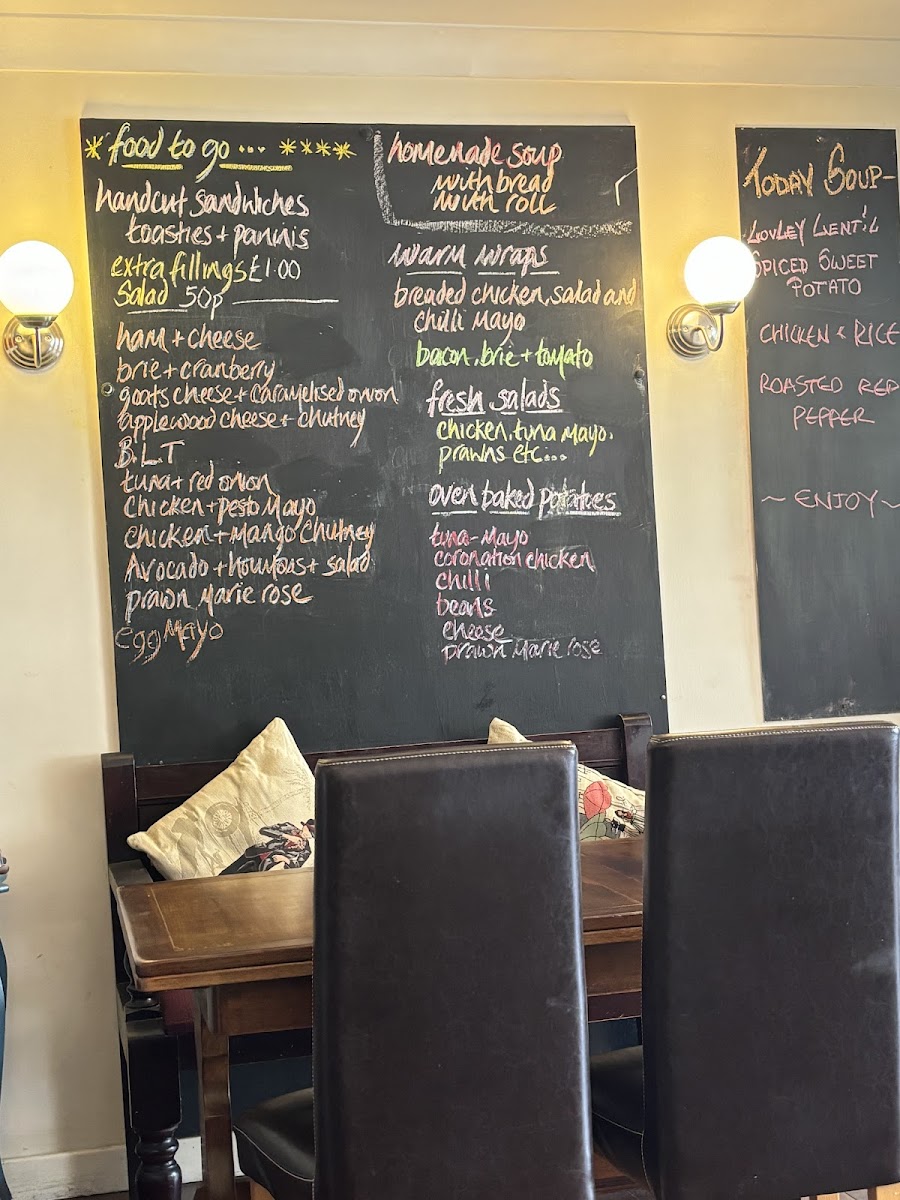 * food to go ... ****
handcut sandwiches
toasties + paninis
extra fillings £1.00
Salad 50p
ham + cheese
brie + cranberry
goats cheese + Caramelised onion
applewood cheese + chutney
B.L.T
tuna + red onion
Chicken + Pesto Mayo
Chicken + Mango Chutney
Avocado + houmous + salad
prawn Marie rose
egg Mayo
homemade soup
with bread
with roll
warm wraps
breaded chicken, salad and
chilli Mayo
bacon, brie + tomato
fresh salads
chicken, tuna Mayo,
prawns etc...
oven baked potatoes
tuna-Mayo
coronation chicken
chilli
beans
cheese
prawn Marie rose
TODAY SOUP-
LOVLEY LENTIL
SPICED SWEET
POTATO
CHICKEN & RICE
ROASTED RED
PEPPER
~ ENJOY ~